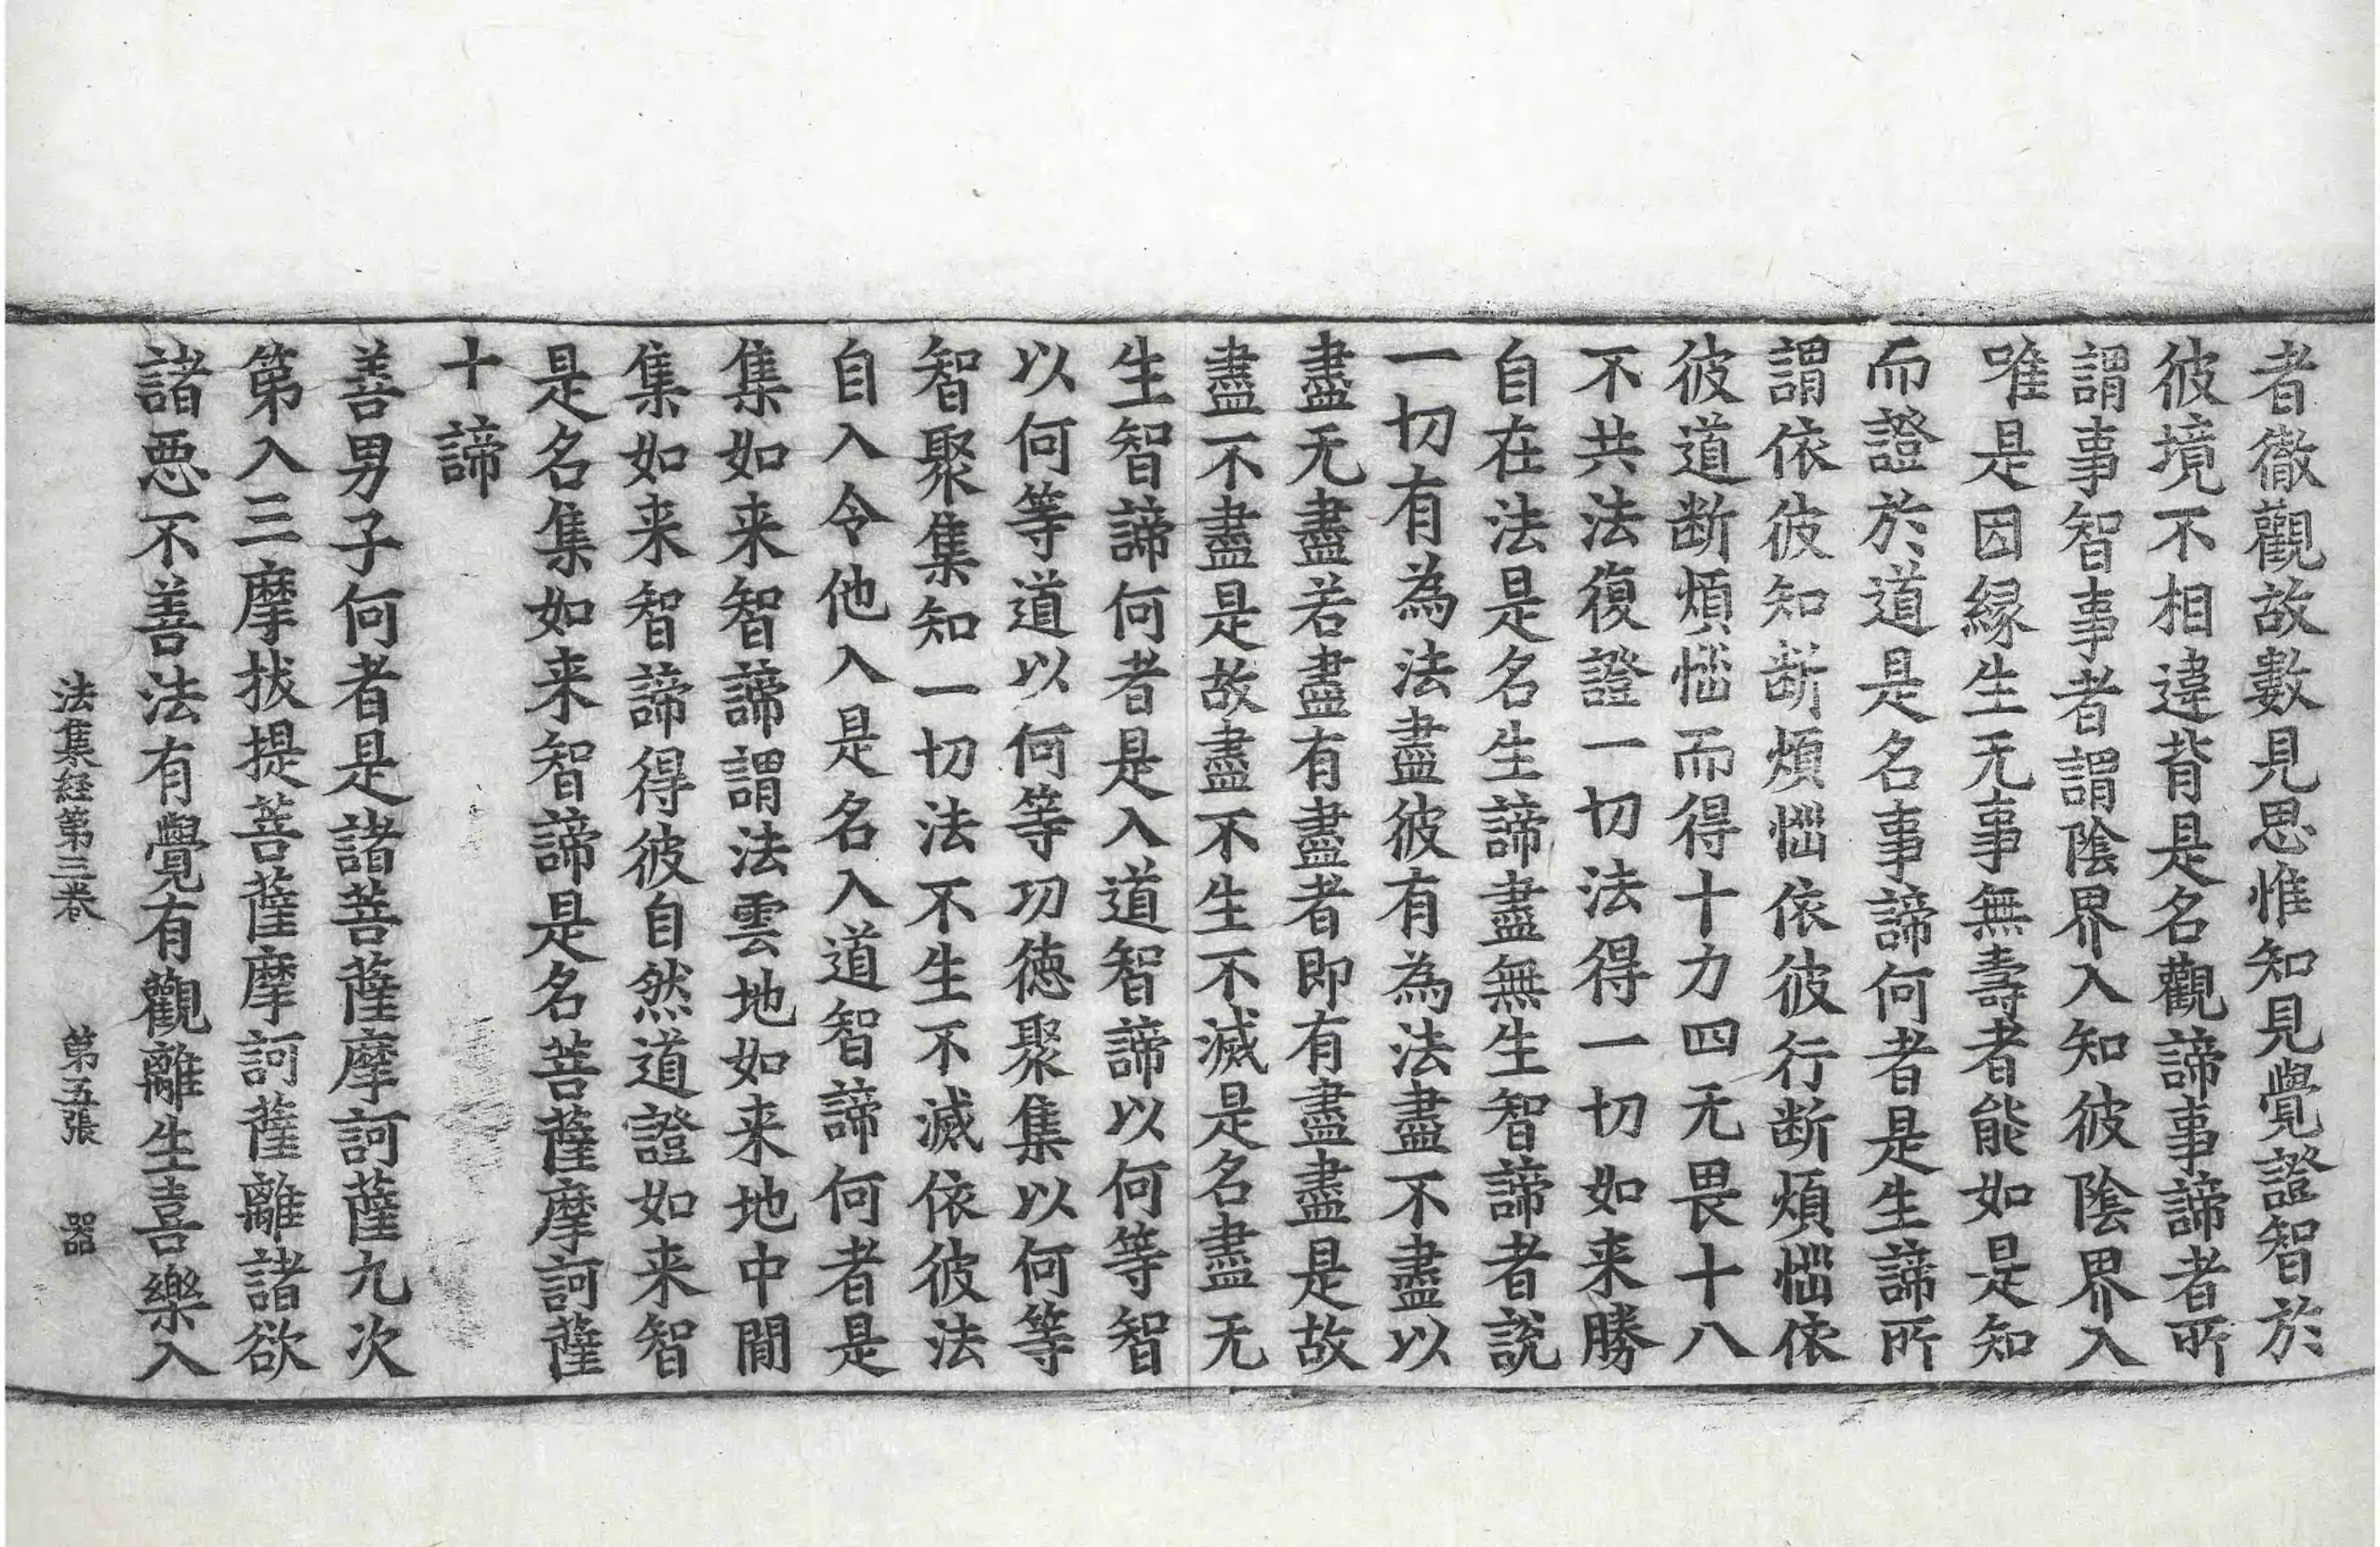 者徹觀故數見思惟知見覺證智於
彼境不相違背是名觀諦事諦者所
謂事智事者謂陰界入知彼陰界入
唯是因緣生无事無壽者能如是知
而證於道是名事諦何者是生諦所
謂依彼知断煩惱依彼行断煩惱依
彼道断煩惱而得十力四无畏十八
不共法復證一切法得一切如来勝
自在法是名生諦盡無生智諦者說
一切有為法盡彼有為法盡不盡以
盡无盡若盡有盡者即有盡盡是故
盡不盡是故盡不生不滅是名盡无
生智諦何者是入道智諦以何等智
以何等道以何等功德聚集以何等
智聚集知一切法不生不滅依彼法
自入令他入是名入道智諦何者是
集如来智諦謂法雲地如来地中間
集如来智諦得彼自然道證如来智
是名集如来智諦是名菩薩摩訶薩
十諦
善男子何者是諸菩薩摩訶薩九次
第入三摩拔提菩薩摩訶薩離諸欲
諸惡不善法有覺有觀離生喜樂入
法集経第三卷 第五張 器